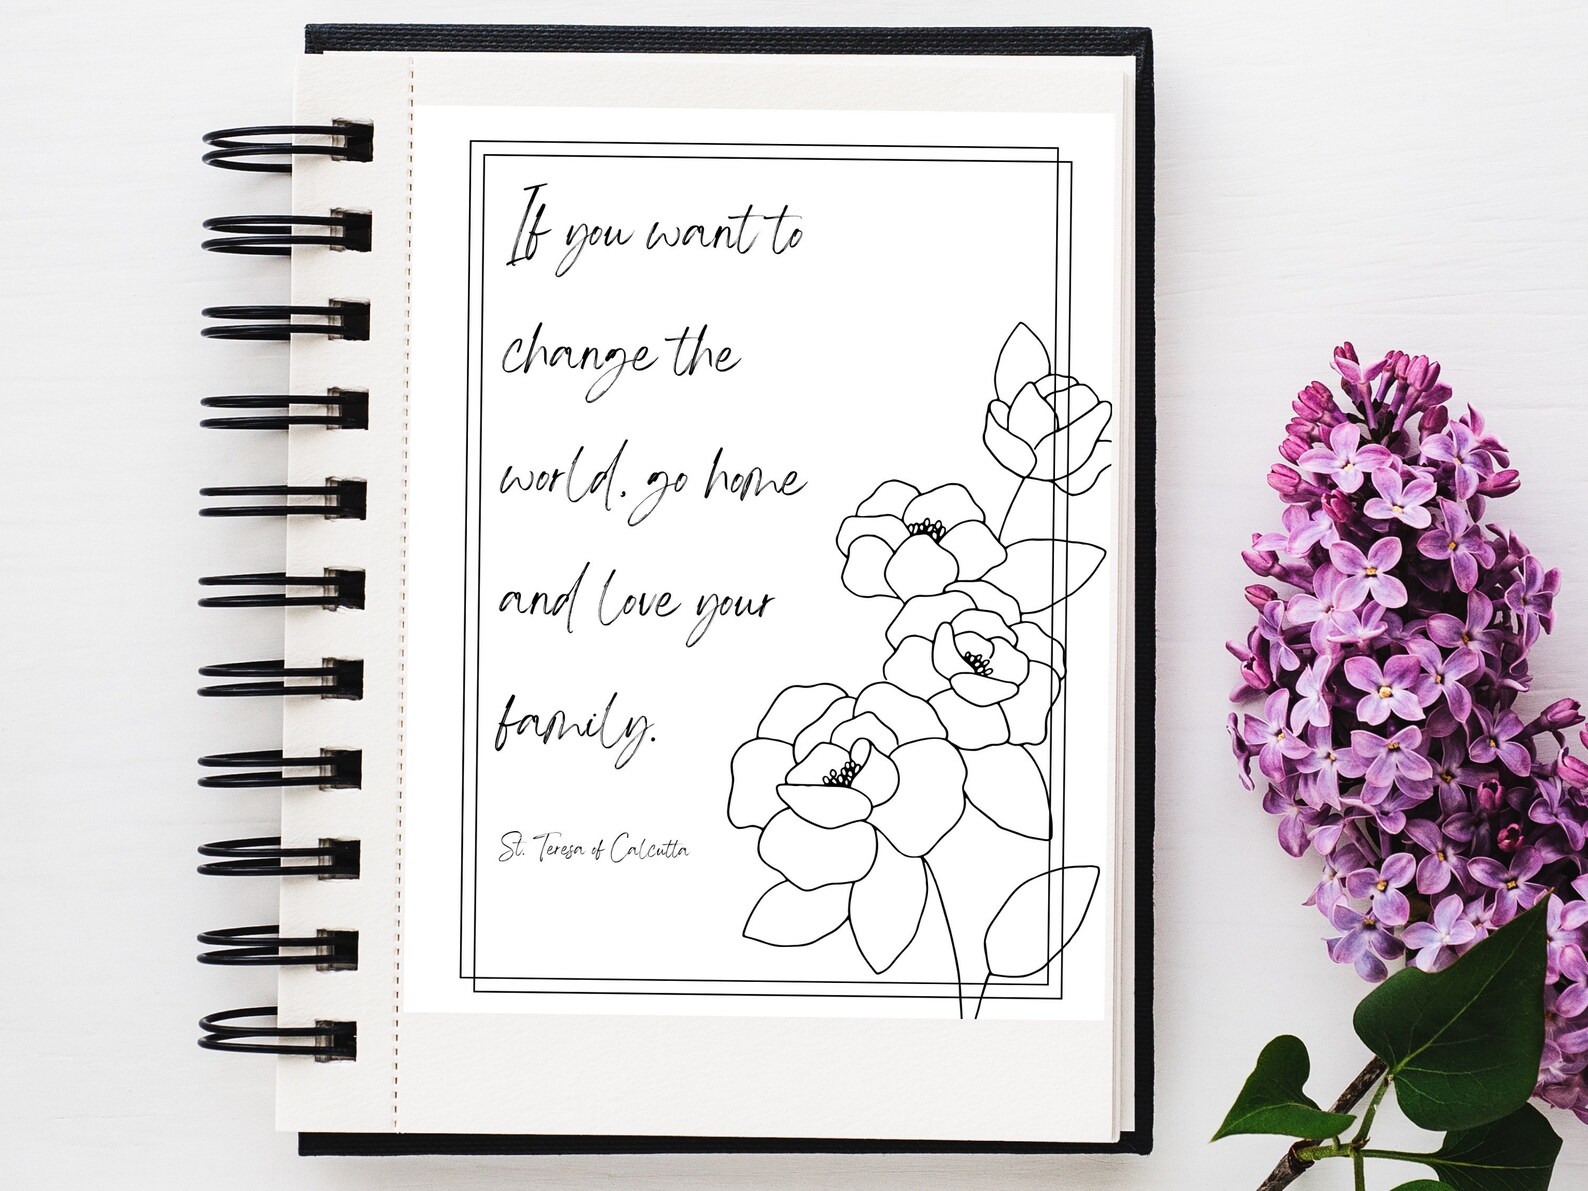 If you want to
change the
world, go home
and love your
family.
St. Teresa of Calcutta